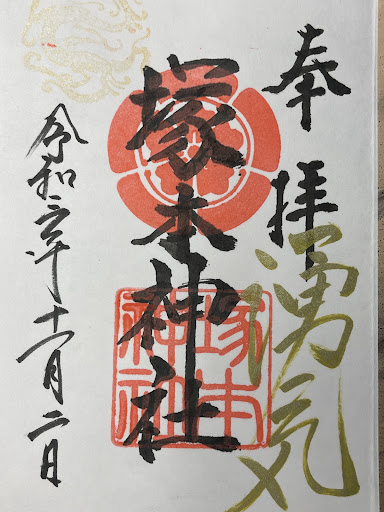 奉拝
湧気
塚本神社
塚本
神社
令和六年十一月二日